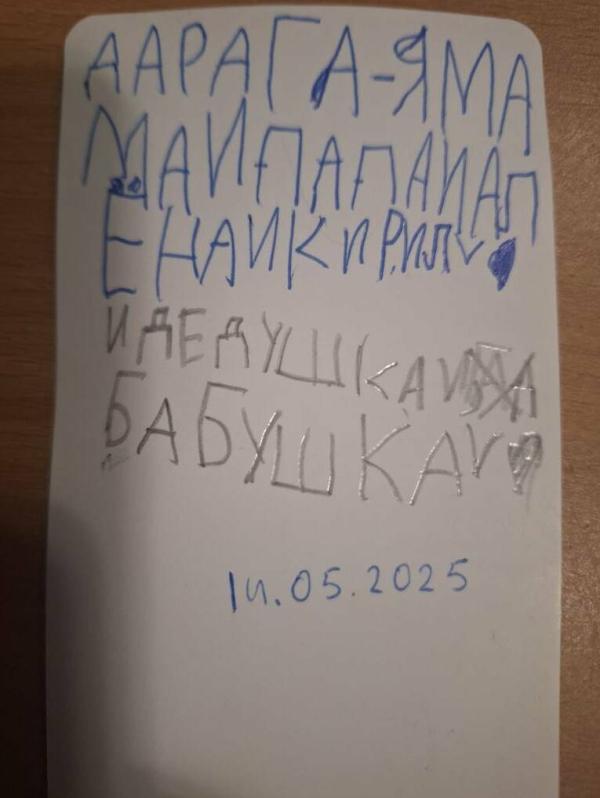 ААРАГА-ЯМА
МАИПАПАИАЛ
ЁНАИКИРИЛ
И ДЕДУШКАИ
БАБУШКАИ
14.05.2025